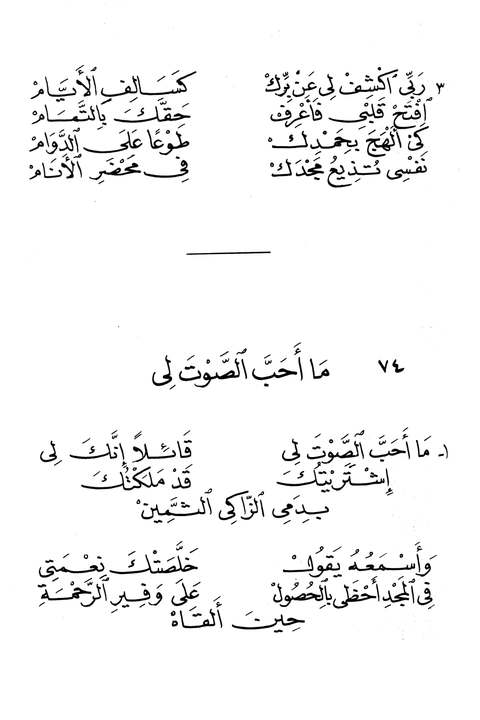 ٣ رَبِّي اكْشِفْ لِي عَنْ بِرِّكْ كَسَالِفِ الْأَيَّامْ
اِفْتَحْ قَلْبِي فَأَعْرِفْ حَقَّكَ بِالتَّمَامْ
كَيْ أَلْهَجَ بِحَمْدِكْ طَوْعًا عَلَى الدَّوَامْ
نَفْسِي تُذِيعُ مَجْدَكْ فِي مَحْضَرِ الْأَنَامْ
٧٤ مَا أَحَبَّ الصَّوْتَ لِي
١- مَا أَحَبَّ الصَّوْتَ لِي قَائِلاً إِنَّكَ لِي
إِشْتَرَيْتُكَ قَدْ مَلَكْتُكَ
بِدَمِي الزَّاكِي الثَّمِينْ
وَأَسْمَعُهُ يَقُولُ خَلَّصَتْكَ نِعْمَتِي
فِي الْمَجْدِ أَحْظَى بِالْحُصُولْ عَلَى وَفِيرِ الرَّحْمَةِ
حِينَ أَلْقَاهْ